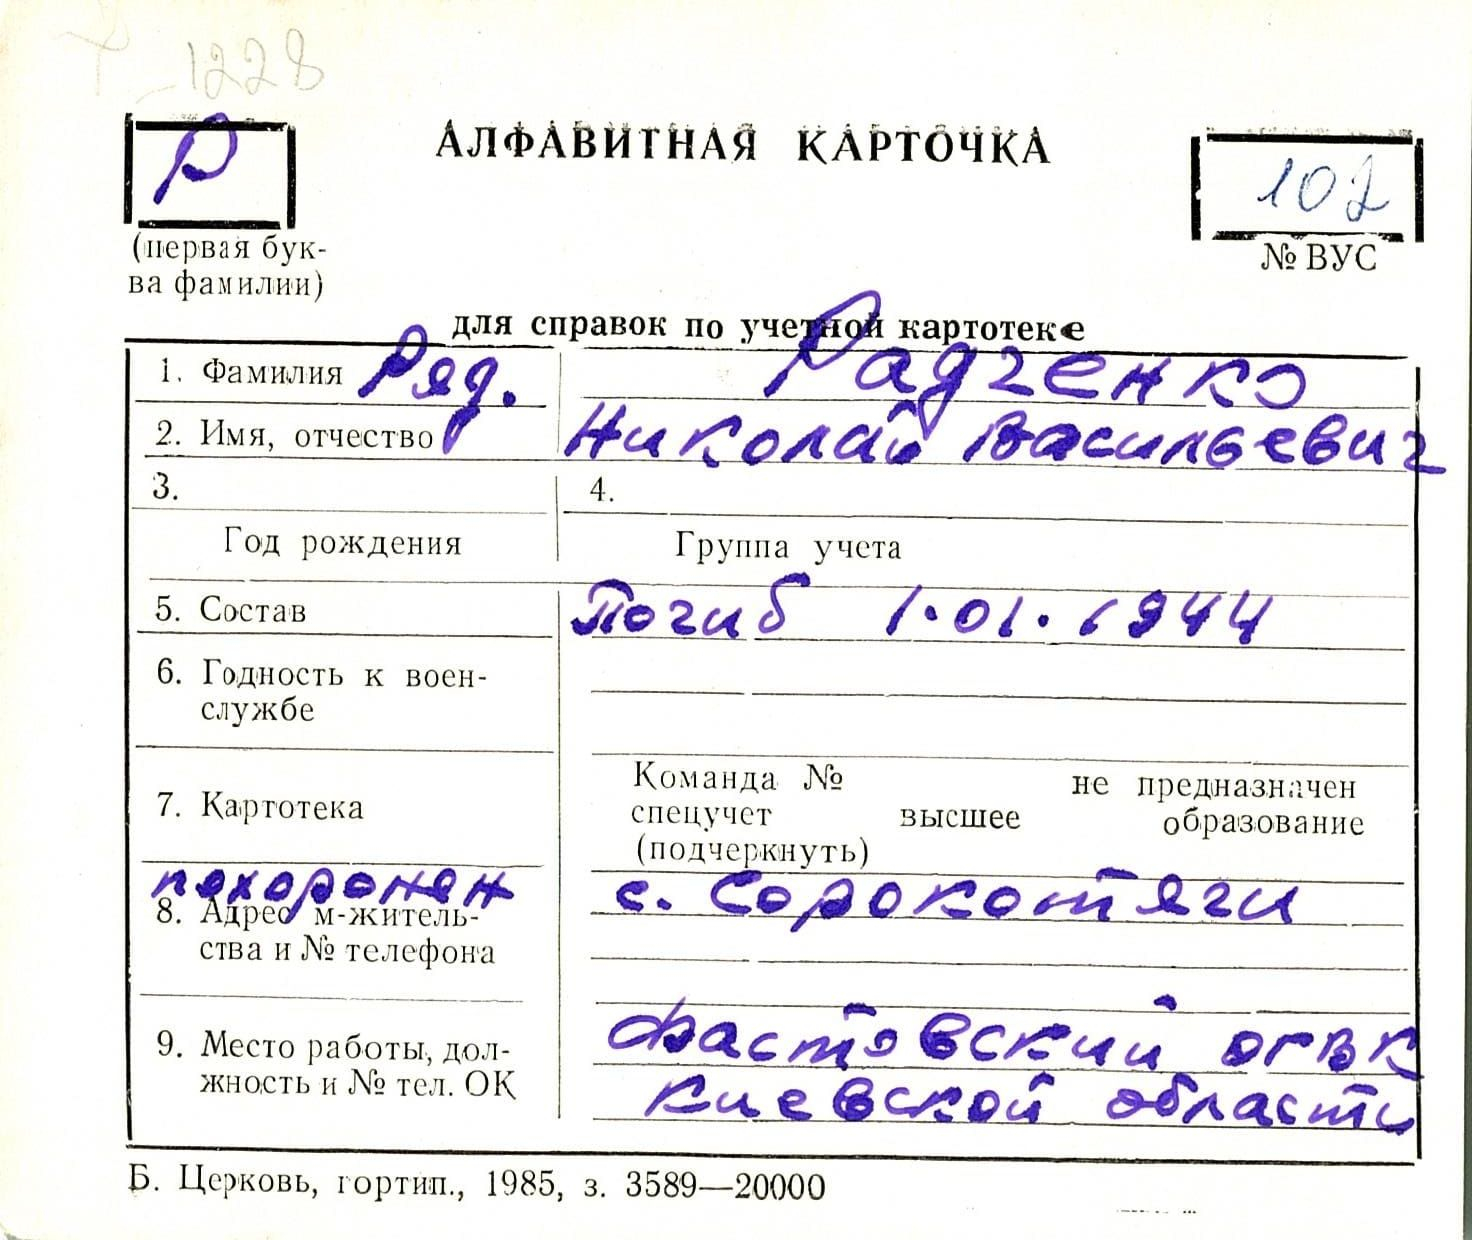 1228
Р
АЛФАВИТНАЯ КАРТОЧКА
102
(первая бук-
ва фамилии)
№ ВУС
для справок по учетной картотеке
1. Фамилия Ряд. Радченко
2. Имя, отчество Николай Васильевич
3. 4.
Год рождения Группа учета
5. Состав Погиб 1.01.1944
6. Годность к воен-
службе
7. Картотека
Команда № не предназначен
спецучет высшее образование
(подчеркнуть)
похоронен с. Сорокотяги
8. Адрес м-житель-
ства и № телефона
9. Место работы, дол-
жность и № тел. ОК
Фастовский ОГВК
Киевской области
Б. Церковь, гортип., 1985, з. 3589—20000